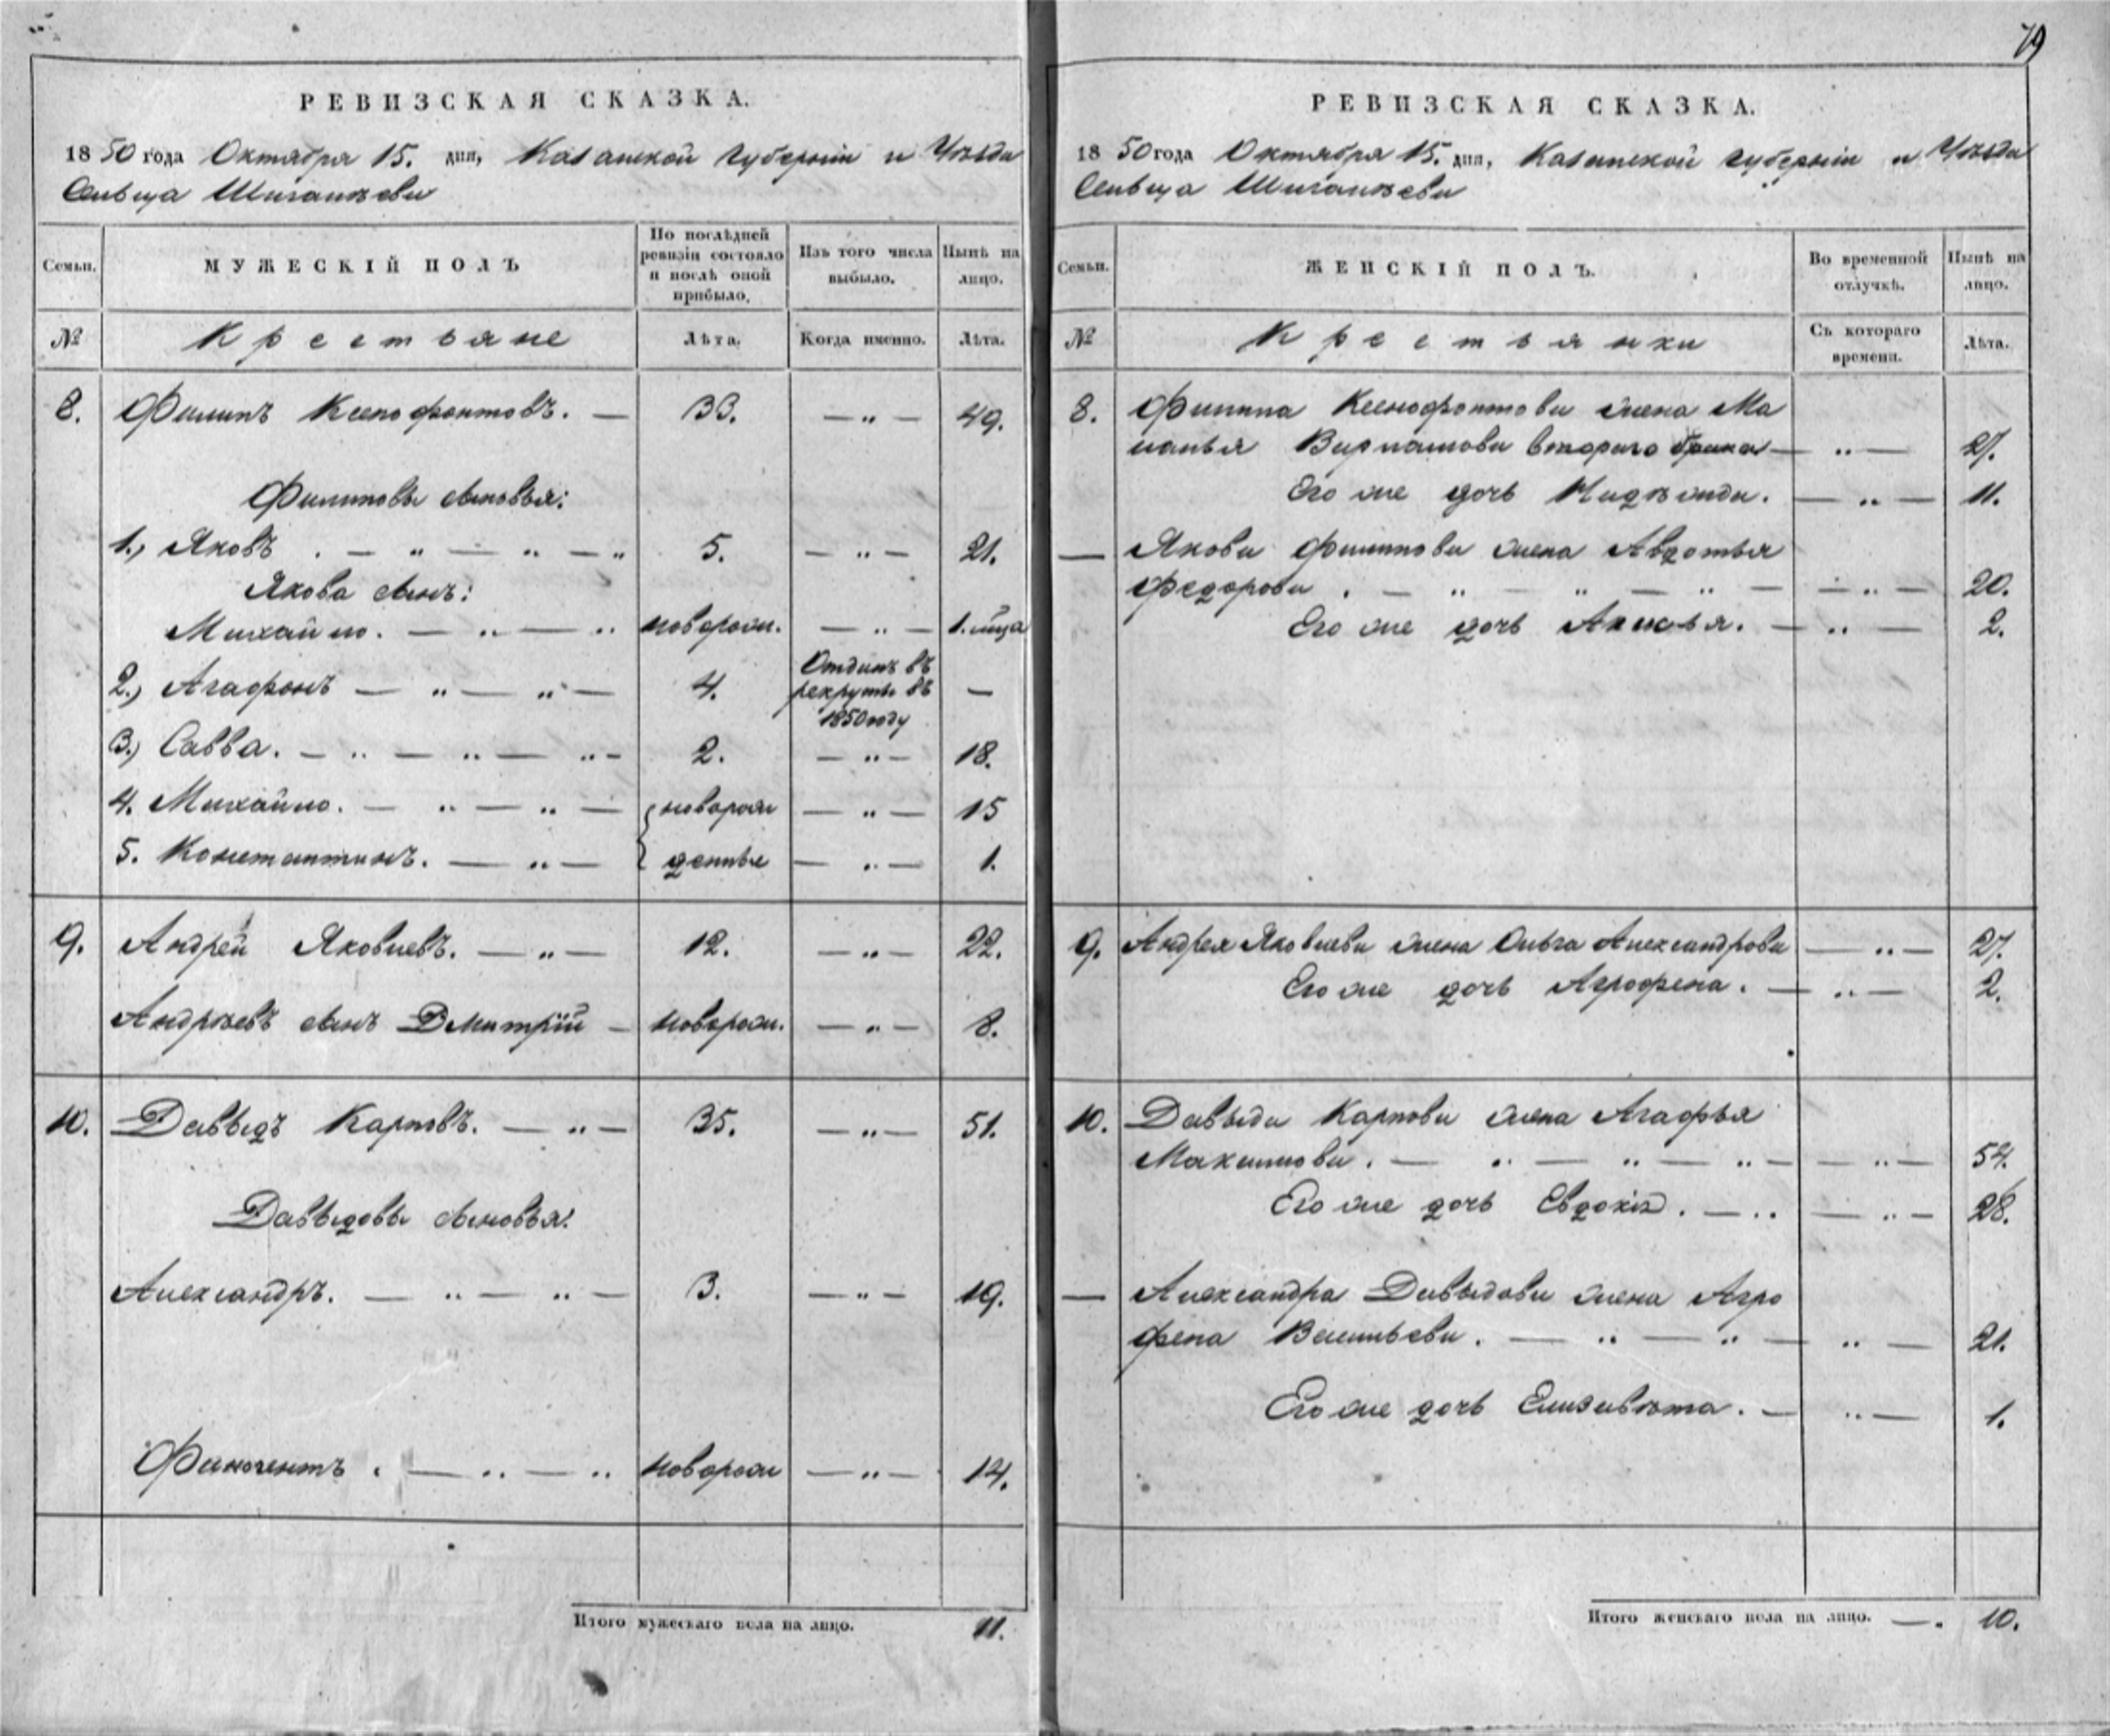 79
РЕВИЗСКАЯ СКАЗКА.
1850 года Октября 15. дня, Казанской губернiи и Уѣзда
Сельца Шигалѣева
Семьи.
МУЖЕСКIЙ ПОЛЪ
По послѣдней ревизiи состояло и послѣ оной прибыло.
Изъ того числа выбыло.
Нынѣ на лицо.
№
Крестьяне
Лѣта.
Когда именно.
Лѣта.
8. Филипъ Ксенофонтовъ. — 33. — „ — 49.
Филиповы сыновья:
1.) Яковъ . — „ — „ — „ 5. — „ — 21.
Якова сынъ:
Михайло. — „ — „ новорож. — „ — 1. м҃ца
2.) Агафонъ — „ — „ — 4. Отданъ въ рекруты въ 1850 году —
3.) Савва. — „ — „ — „ — 2. — „ — 18.
4. Михайло. — „ — „ — новорож — „ — 15
5. Константинъ. — „ — денные — „ — 1.
9. Андрей Яковлевъ. — „ — 12. — „ — 22.
Андрѣевъ сынъ Дмитрiй — новорож. — „ — 8.
10. Давыдъ Карповъ. — „ — 35. — „ — 51.
Давыдовы сыновья:
Александръ. — „ — „ — 3. — „ — 19.
новорож — „ — 14.
Итого мужескаго пола на лицо. 11.
РЕВИЗСКАЯ СКАЗКА.
1850 года Октября 15. дня, Казанской губернiи и Уѣзда
Сельца Шигалѣева
Семьи.
ЖЕНСКIЙ ПОЛЪ.
Во временной отлучкѣ.
Нынѣ на лицо.
№
Крестьянки
Съ котораго времени.
Лѣта.
8. Филипа Ксенофонтова жена Ма
ланья Варламова втораго брака — „ — 27.
Его же дочь Надѣжда. — „ — 11.
— Якова Филипова жена Авдотья
Федорова . — „ — „ — „ — — „ — 20.
Его же дочь Аксинья. — „ — 2.
9. Андрея Яковлева жена Ольга Александрова — „ — 27.
Его же дочь Агрофена. — „ — 2.
10. Давыда Карпова жена Агафья
Максимова. — „ — „ — „ — — „ — 54.
Его же дочь Евдокiя. — „ — „ — 28.
— Александра Давыдова жена Агро
фена Васильева. — „ — „ — „ — 21.
Его же дочь Елизавѣта. — „ — 1.
Итого женскаго пола на лицо. — . 10.